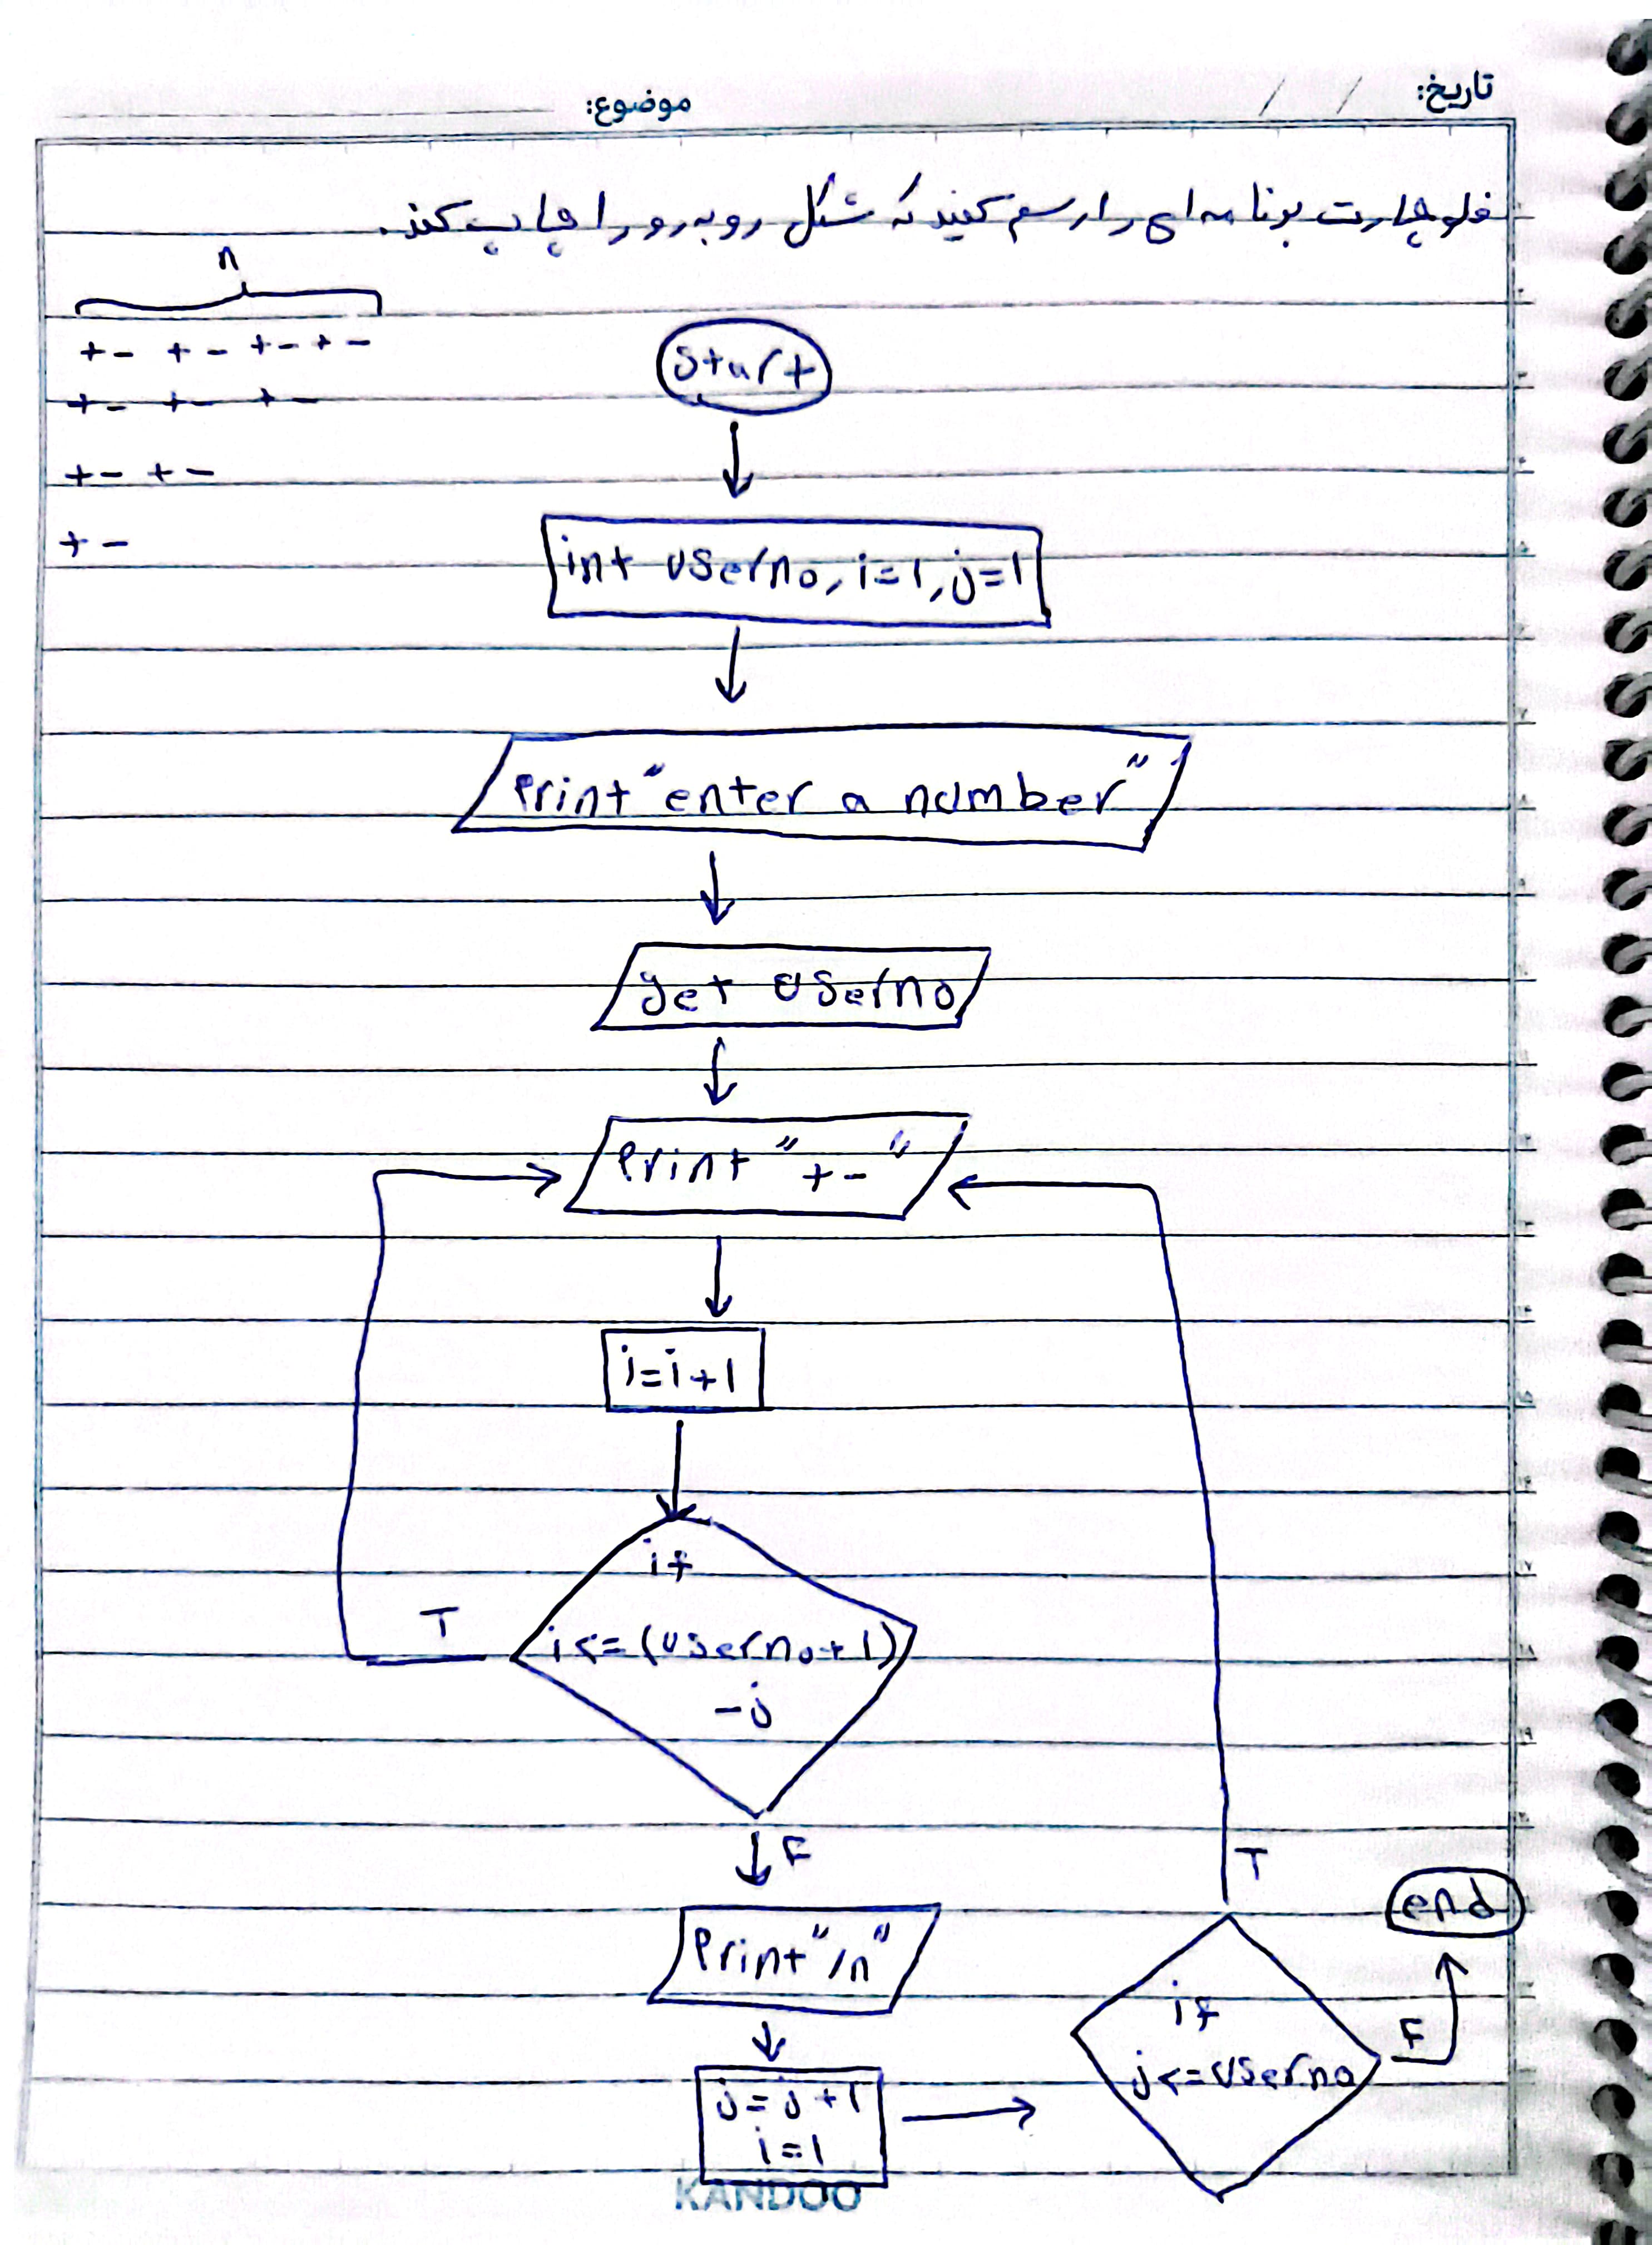 تاریخ: / /
موضوع:
فلوچارت برنامه ای را رسم کنید که شکل روبه رو را چاپ کند.
n
+- +- +- +-
+- +- +-
+- +-
+-
start
int userno, i=1, j=1
Print "enter a number"
get userno
Print "+-"
i=i+1
if
i<=(userno+1)
-j
T
F
Print "/n"
j=j+1
i=1
if
j<=userno
T
F
end
KANDOO